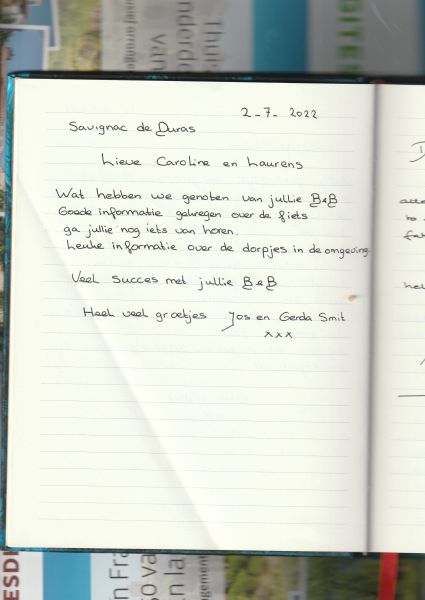 2-7-2022
Savignac de Duras
Lieve Caroline en Laurens
Wat hebben we genoten van jullie B&B
Goede informatie gekregen over de fiets
ga jullie nog iets van horen.
Leuke informatie over de dorpjes in de omgeving.
Veel succes met jullie B&B
Heel veel groetjes Jos en Gerda Smit
xxx